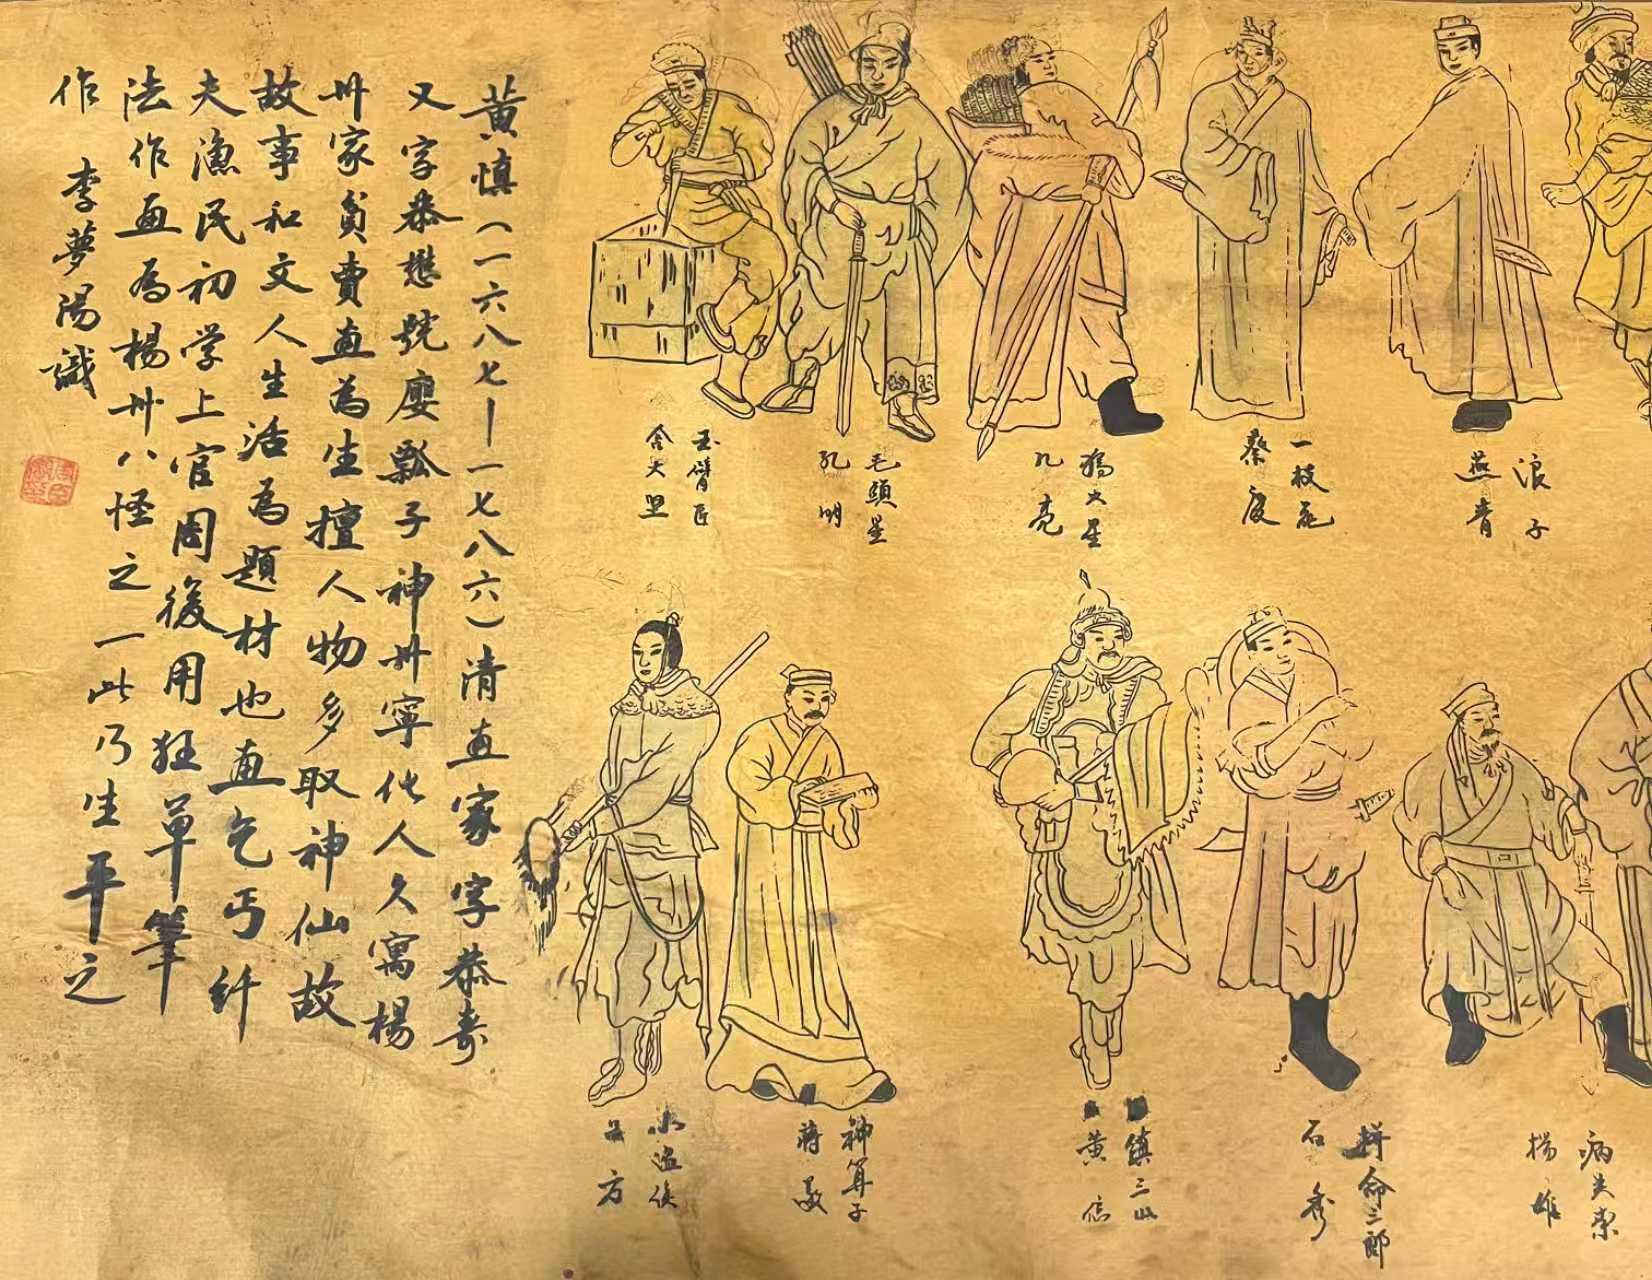 浪子
燕青
一枝花
蔡慶
獨火星
孔亮
毛頭星
孔明
玉臂匠
病关索
楊雄
拼命三郎
石秀
鎮三山
黄信
神算子
蒋敬
小温侯
吕方
黄慎(一六八七—一七八六)清画家字恭寿
又字恭懋號廮瓢子神州寧化人久寓楊
州家貧賣画為生擅人物多取神仙故
故事和文人生活為題材也画乞丐纤
夫漁民初学上官周後用狂草筆
法作画為楊州八怪之一此乃生平之
作 李夢陽識